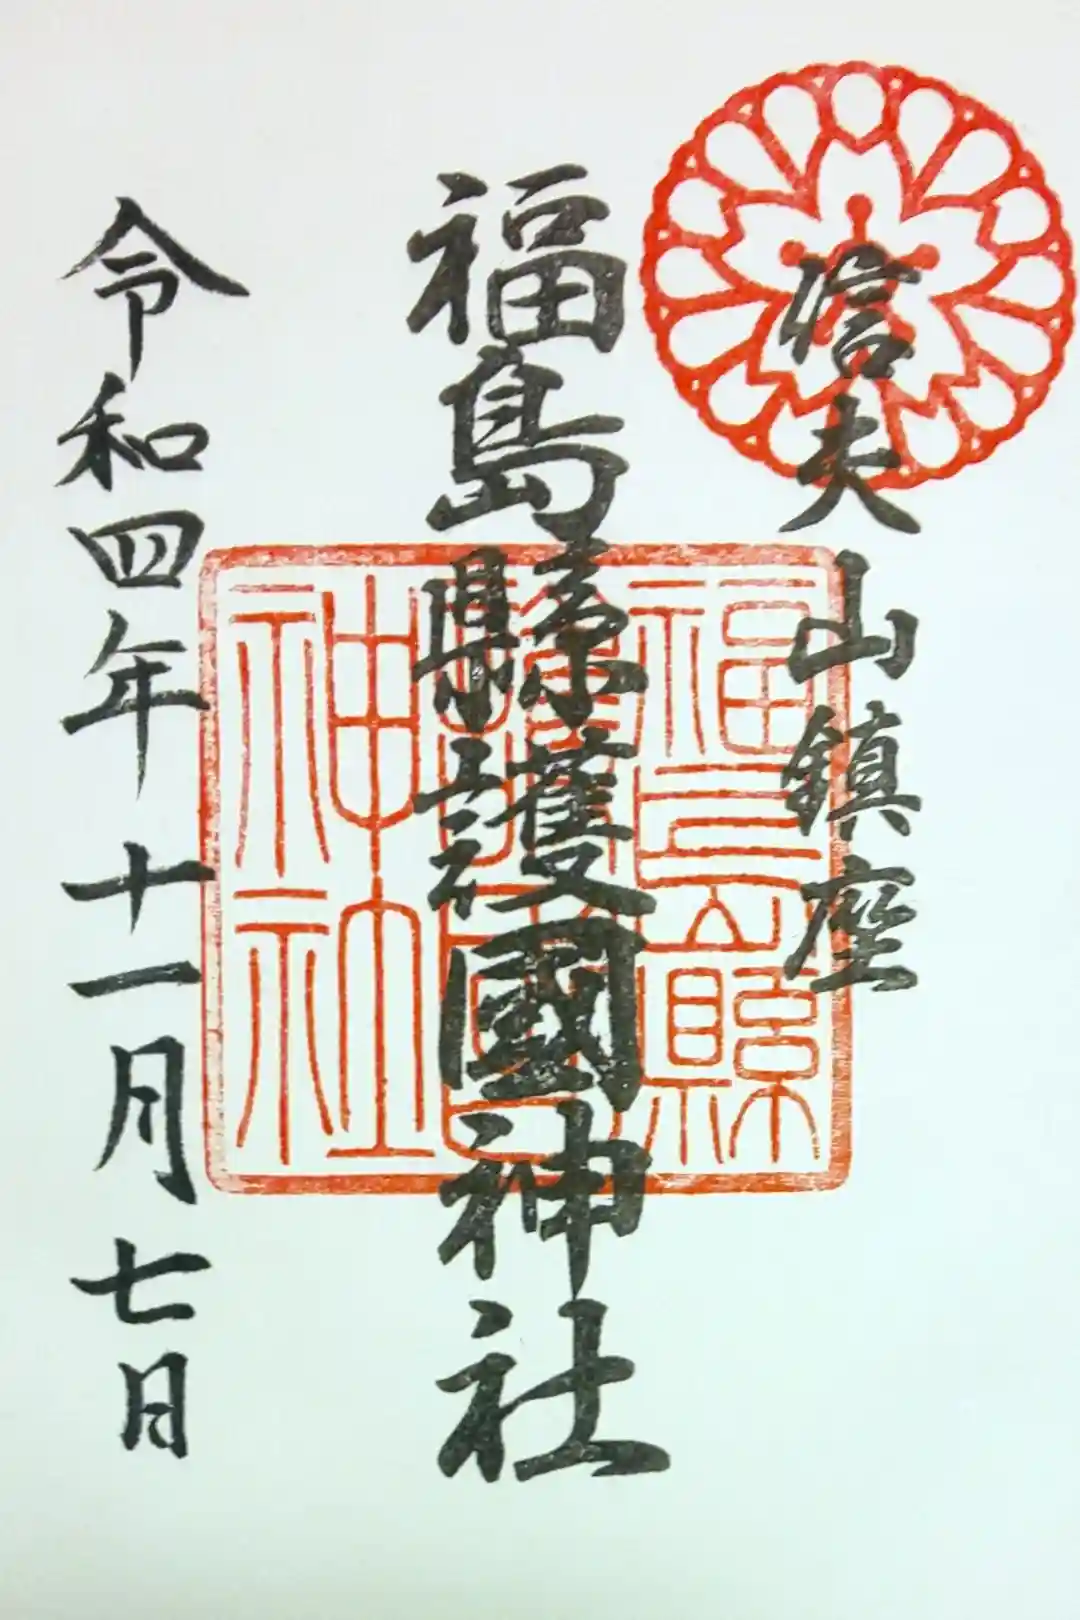 信夫山鎮座
福島縣護國神社
福島縣
護國
神社
令和四年十一月七日